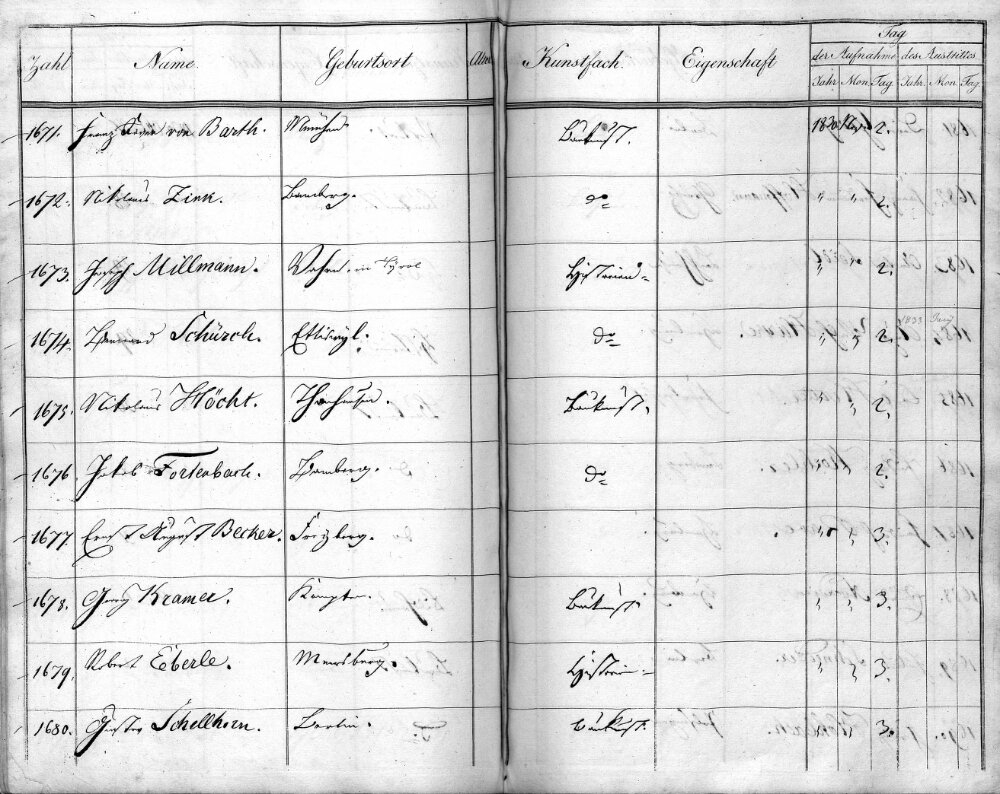 Zahl Name Geburtsort Alter Kunstfach. Eigenschaft Tag
der Aufnahme des Austrittes
Jahr Mon Tag Jahr. Mon. Tag
1671. Franz von Barth. München Baukunst. 1830 Nov. 2.
1672. Nikolaus Zink. Bamberg. do " " 2.
1673. Joseph Millmann. in Tyrol Historien " " 2.
1674. Schürch. Ettiswyl. do " " 2. 1833 Juny
1675. Nikolaus Höcht. Baukunst. " " 2.
1676 Jakob Fortenbach. Bamberg. do " " 2.
1677. Ernst August Becker. " " 3.
1678. Georg Kramer. Kempten. Baukunst. " " 3.
1679. Robert Eberle. Meersburg. Historien " " 3.
1680. Gustav Schellhorn. Berlin. Baukunst. " " 3.